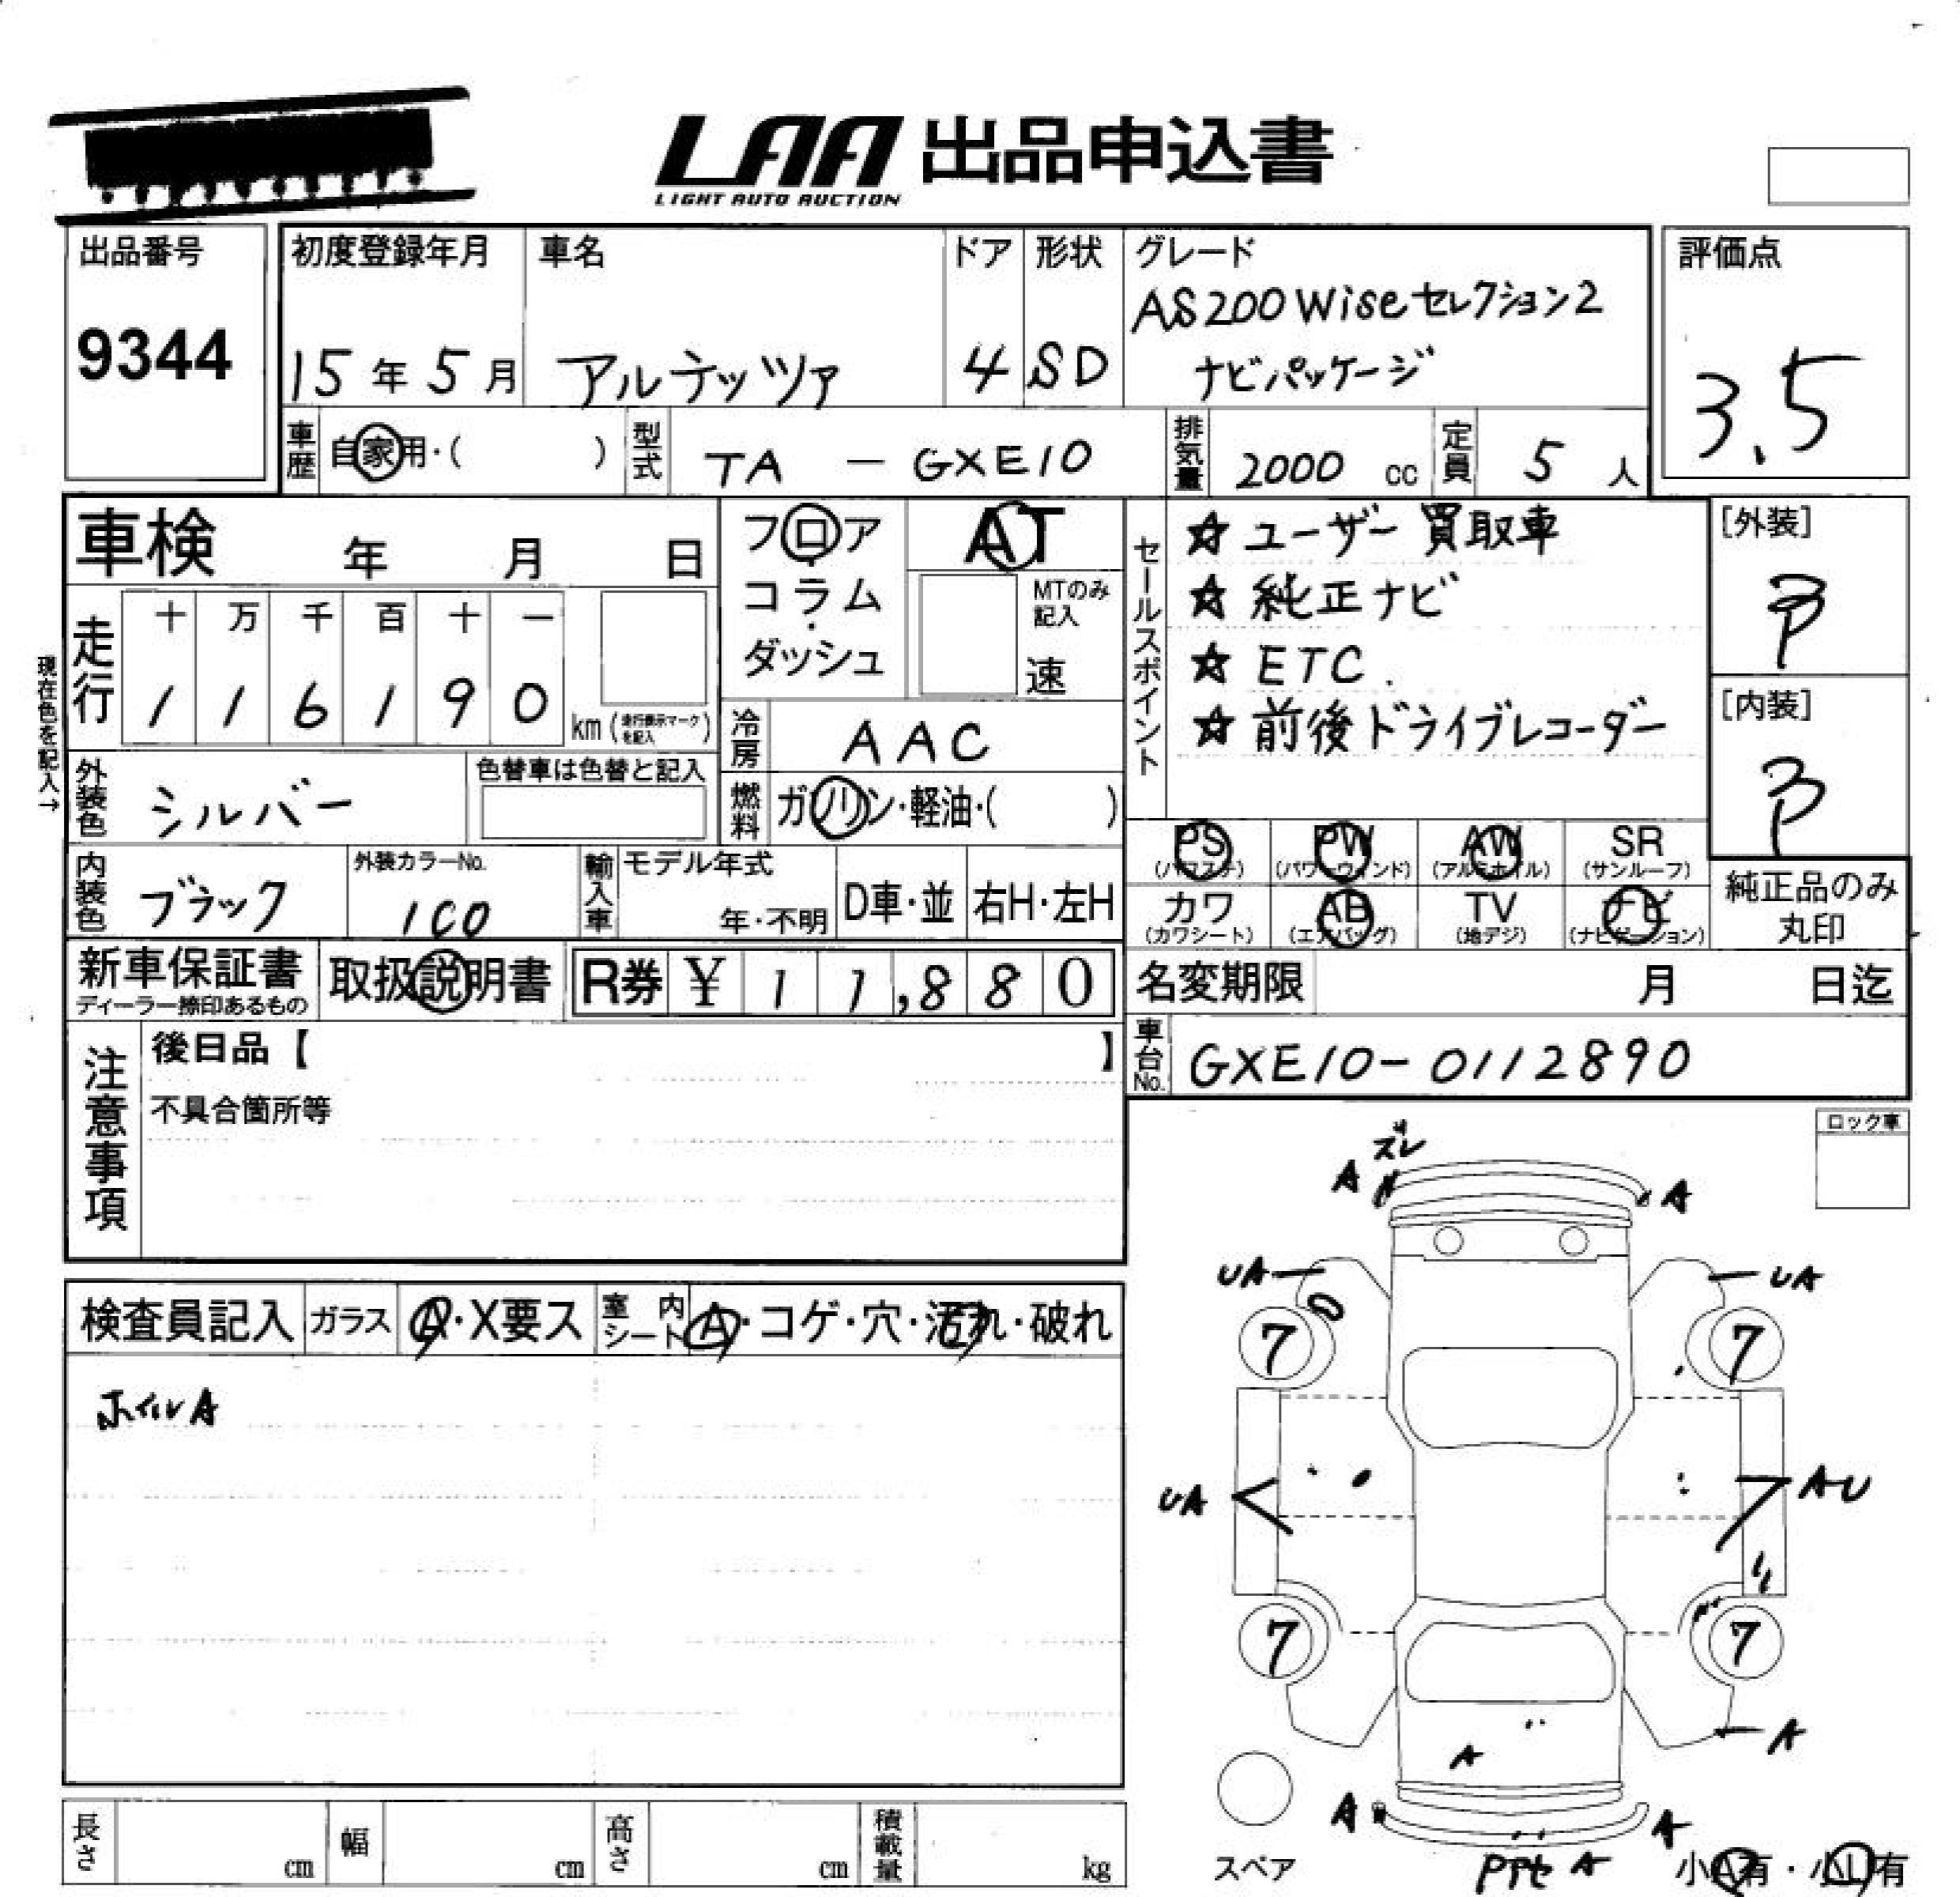 LAA 出品申込書
LIGHT AUTO AUCTION
出品番号
9344
初度登録年月
15年5月
車名
アルテッツァ
ドア
4
形状
SD
グレード
AS200 Wiseセレクション2
ナビパッケージ
評価点
3.5
車歴
自家用・( )
型式
TA - GXE10
排気量
2000 cc
定員
5 人
車検 年 月 日
フロア
コラム
ダッシュ
AT
MTのみ記入
速
走行
十 万 千 百 十 一
1 1 6 1 9 0
km (走行表示マークを記入)
現在色を記入→
冷房
AAC
外装色
シルバー
色替車は色替と記入
燃料
ガソリン・軽油・( )
内装色
ブラック
外装カラーNo.
1C0
輸入車
モデル年式
年・不明
D車・並
右H・左H
セールスポイント
☆ ユーザー買取車
☆ 純正ナビ
☆ ETC.
☆ 前後ドライブレコーダー
[外装]
[内装]
PS
(パワステ)
PW
(パワーウィンド)
AW
(アルミホイル)
SR
(サンルーフ)
カワ
(カワシート)
AB
(エアバッグ)
TV
(地デジ)
ナビ
(ナビゲーション)
純正品のみ
丸印
新車保証書
ディーラー捺印あるもの
取扱説明書
R券 ¥ 1 1,8 8 0
名変期限 月 日迄
車台No.
GXE10-0112890
注意事項
後日品【 】
不具合箇所等
ロック車
検査員記入
ガラス
A・X要ス
室内シート
A・コゲ・穴・汚れ・破れ
ホイルA
ズレ
A
A
UA
UA
7
7
UA
AU
7
7
A
A
A
A
スペア
A
小A有・小U有
長さ cm
幅 cm
高さ cm
積載量 kg